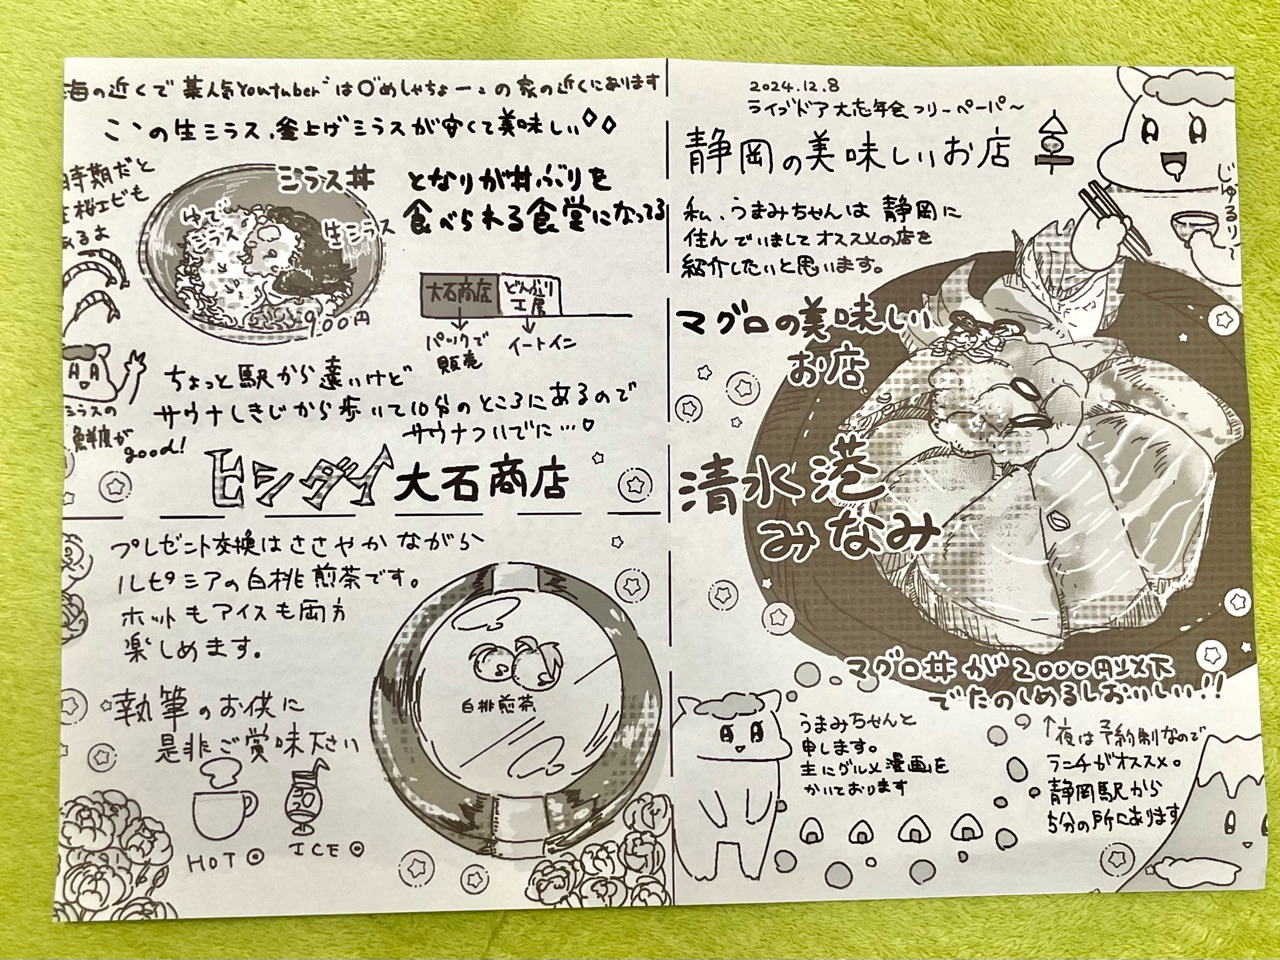 2024.12.8
ライブドア大忘年会フリーペーパー
静岡の美味しいお店
じゅるり〜
私、うまみちゃんは静岡に
住んでいましてオススメの店を
紹介したいと思います。
マグロの美味しい
お店
清水港
みなみ
マグロ丼が2000円以下
でたのしめるしおいしい!!
↑夜は予約制なので
ランチがオススメ。
静岡駅から
5分の所にあります
うまみちゃんと
申します。
主にグルメ漫画を
かいております
海の近くで某人気Youtuber"は〇めしゃちょー"の家の近くにあります
ここの生シラス、釜上げシラスが安くて美味しい
時期だと
桜エビも
あるよ
シラス丼
ゆで
シラス
生シラス
900円
となりが丼ぶりを
食べられる食堂になってる
大石商店
どんぶり
工房
パックで
販売
イートイン
シラスの
鮮度が
good!
ちょっと駅から遠いけど
サウナしきじから歩いて10分のところにあるので
サウナついでに…
ヒシダイ大石商店
プレゼント交換はささやかながら
ルピシアの白桃煎茶です。
ホットもアイスも両方
楽しめます。
執筆のお供に
是非ご賞味下さい
白桃煎茶
HOT◎
ICE◎